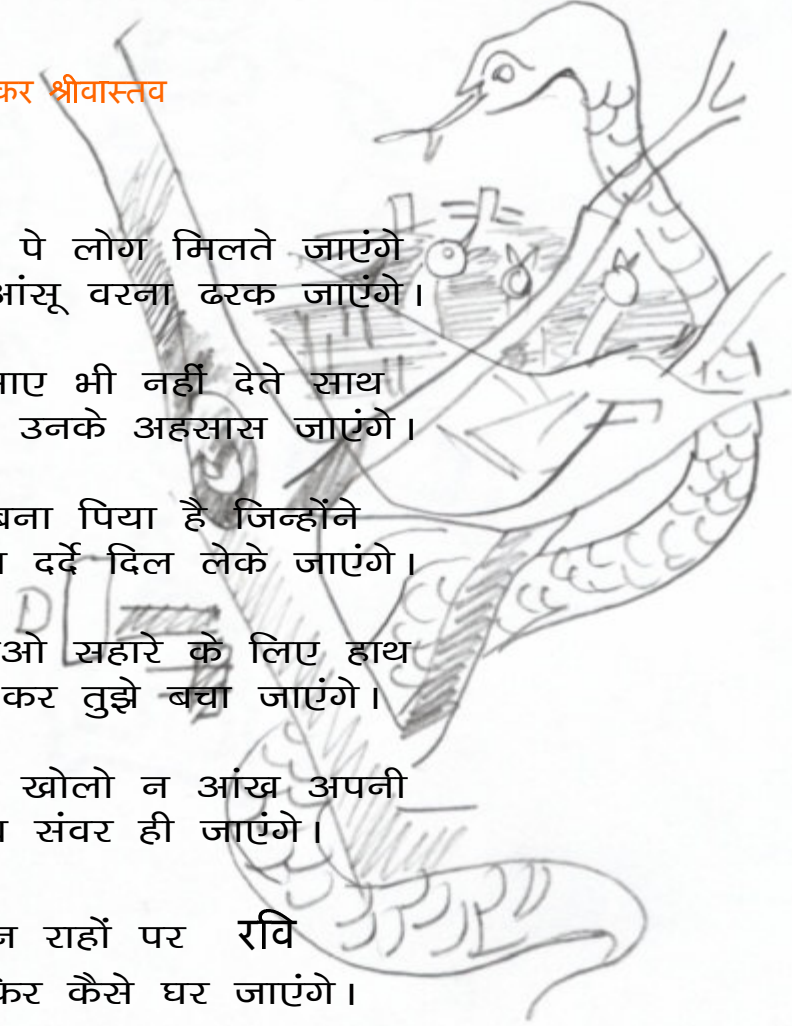 कर श्रीवास्तव
पे लोग मिलते जाएंगे
आंसू वरना ढरक जाएंगे।
साए भी नहीं देते साथ
उनके अहसास जाएंगे।
पिया है जिन्होंने
दर्दे दिल लेके जाएंगे।
सहारे के लिए हाथ
कर तुझे बचा जाएंगे।
खोलो न आंख अपनी
संवर ही जाएंगे।
राहों पर रवि
फिर कैसे घर जाएंगे।